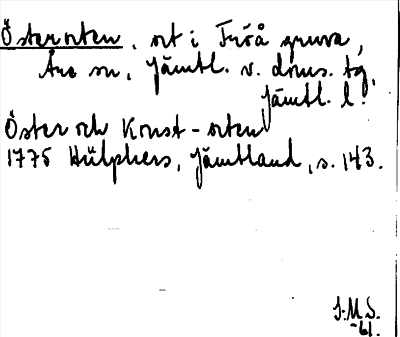 Österorten, ort i Fröå gruva,
Åre sn, Jämtl. v. doms. tg,
Jämtl. l.
Öster och Konst-orten
1775 Hülphers, Jämtland, s. 143.
J.M.S.
-61.